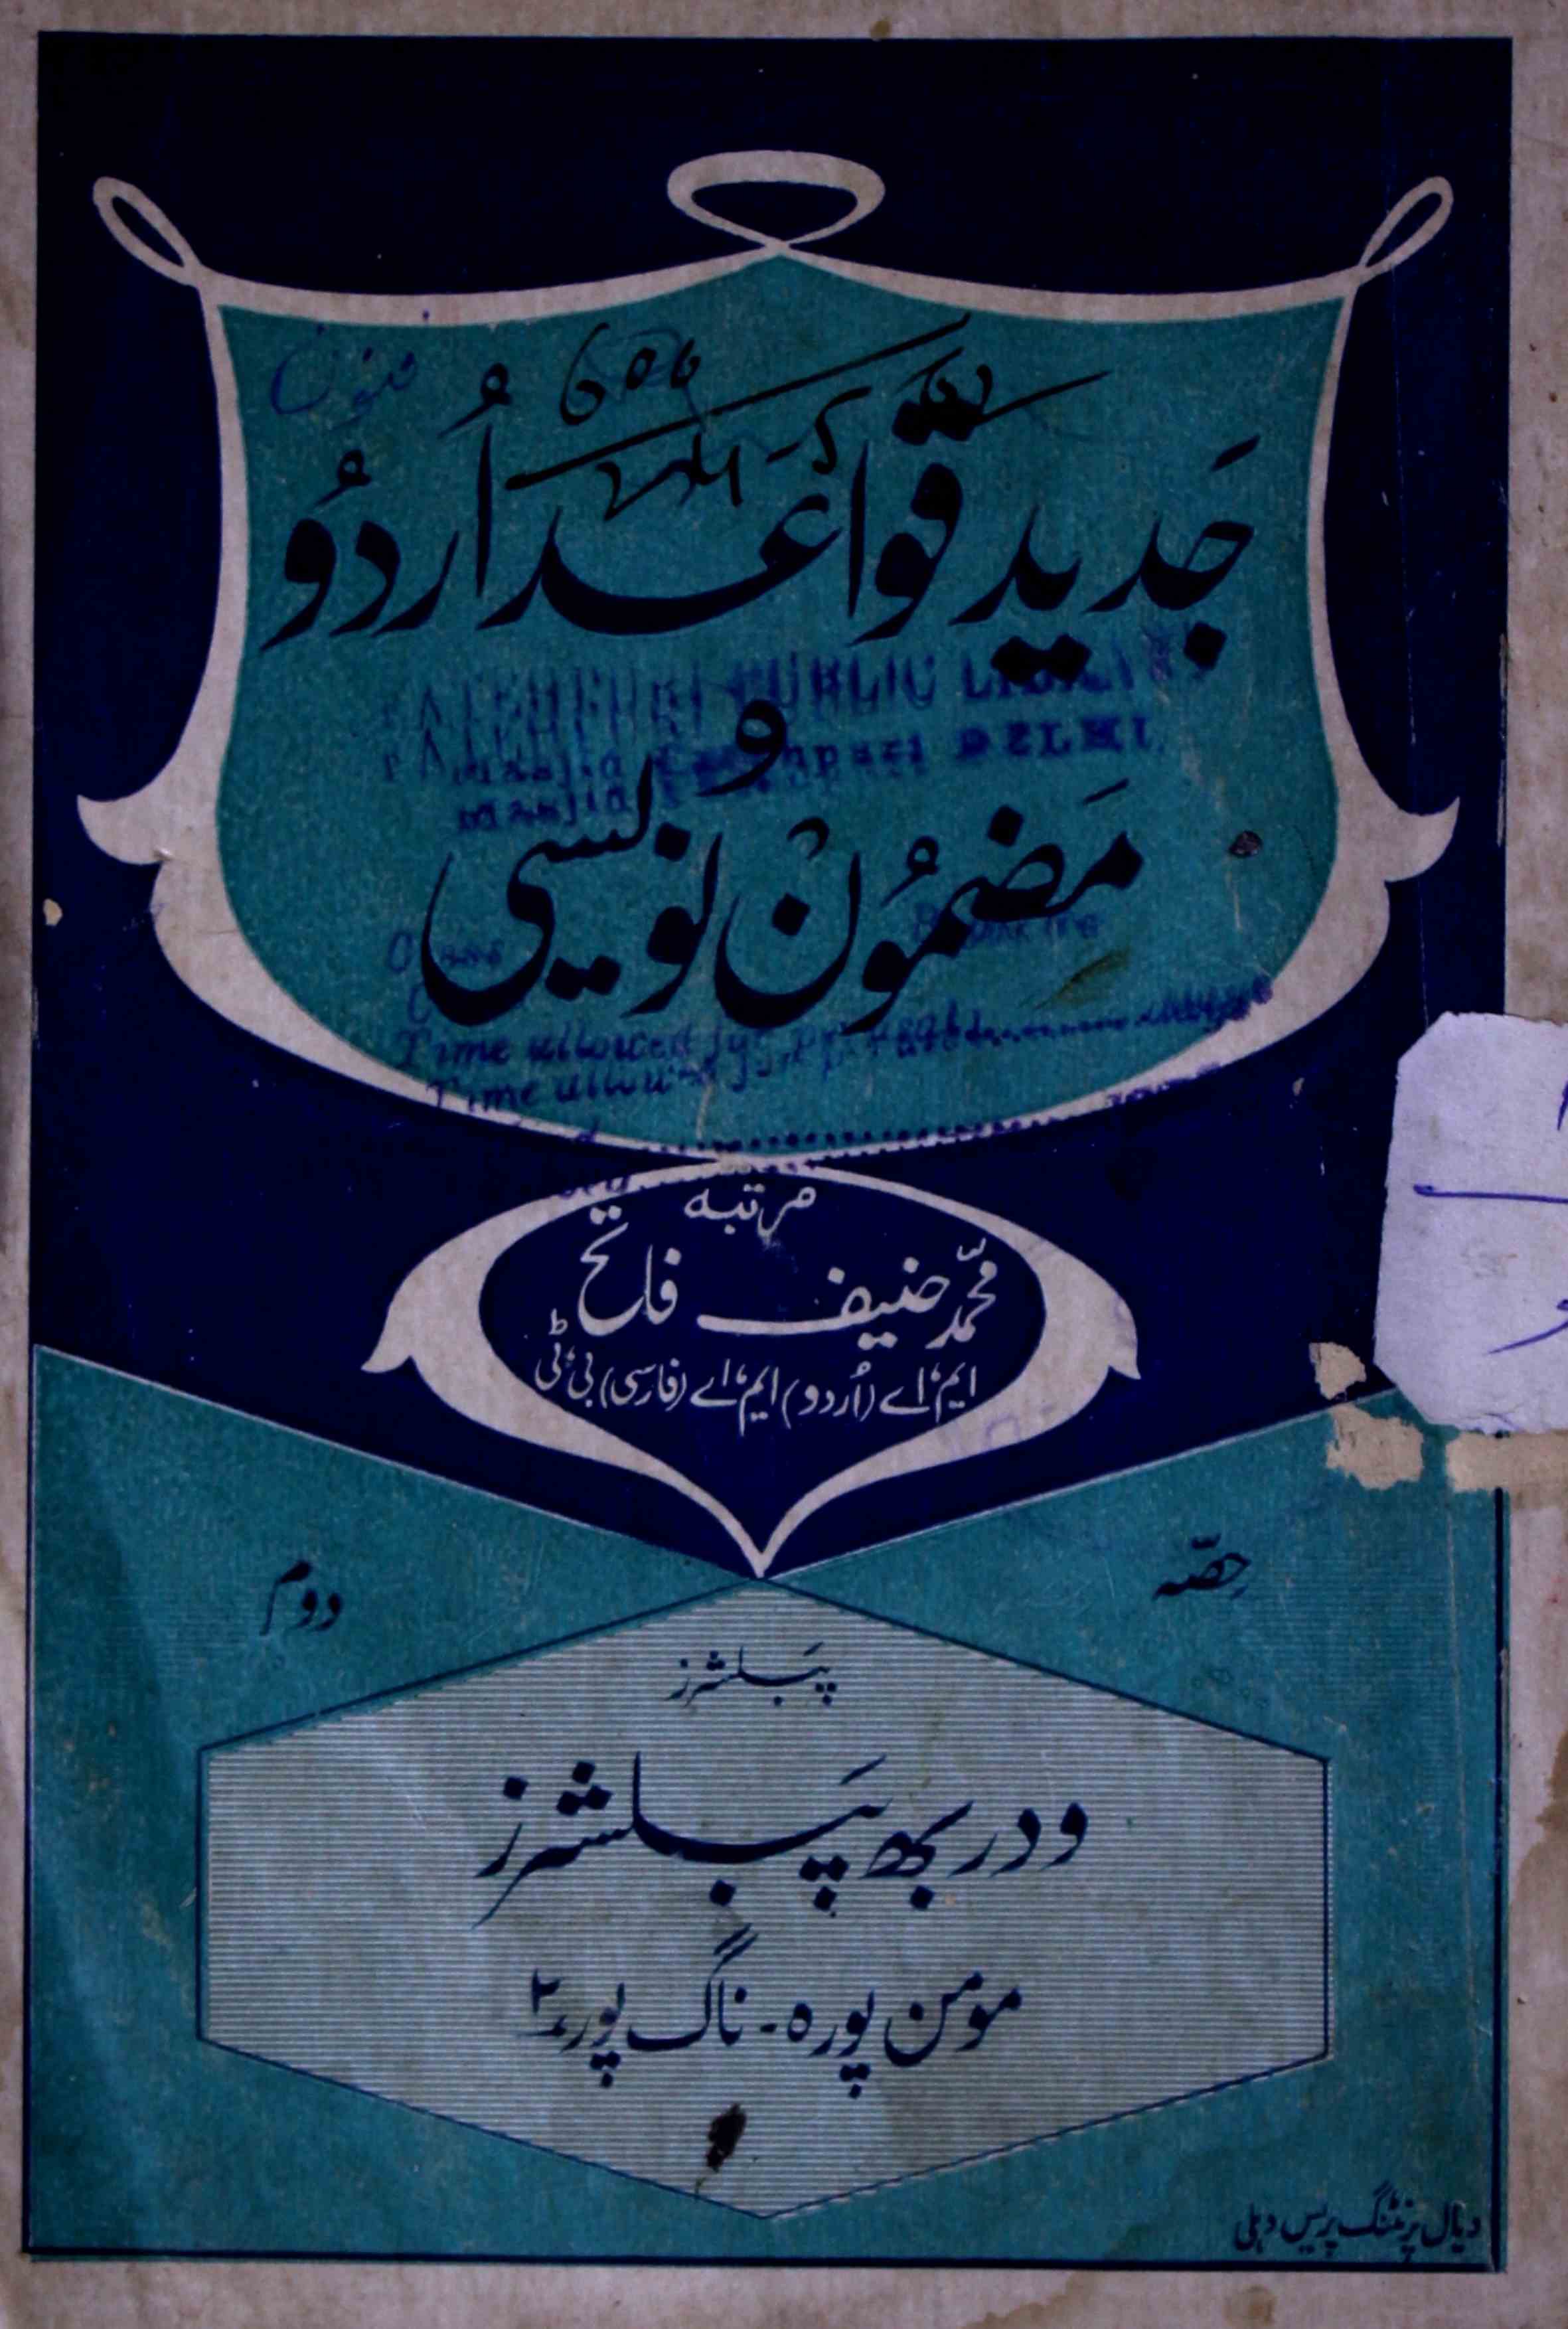 جَدید قَواعَد اُردُو
و
مَضمُون نویسی
FATEHPURI PUBLIC
Masjid Fatehpuri DELHI.
Time allowed for
مرتبہ
محمّد حنیف فاتح
ایم، اے (اُردو) ایم، اے (فارسی) بی، ٹی
حصّہ دوم
پَبلشرز
ودربھ پَبلشرز
مومن پورہ - ناگ پور ۲
دیال پرنٹنگ پریس دہلی